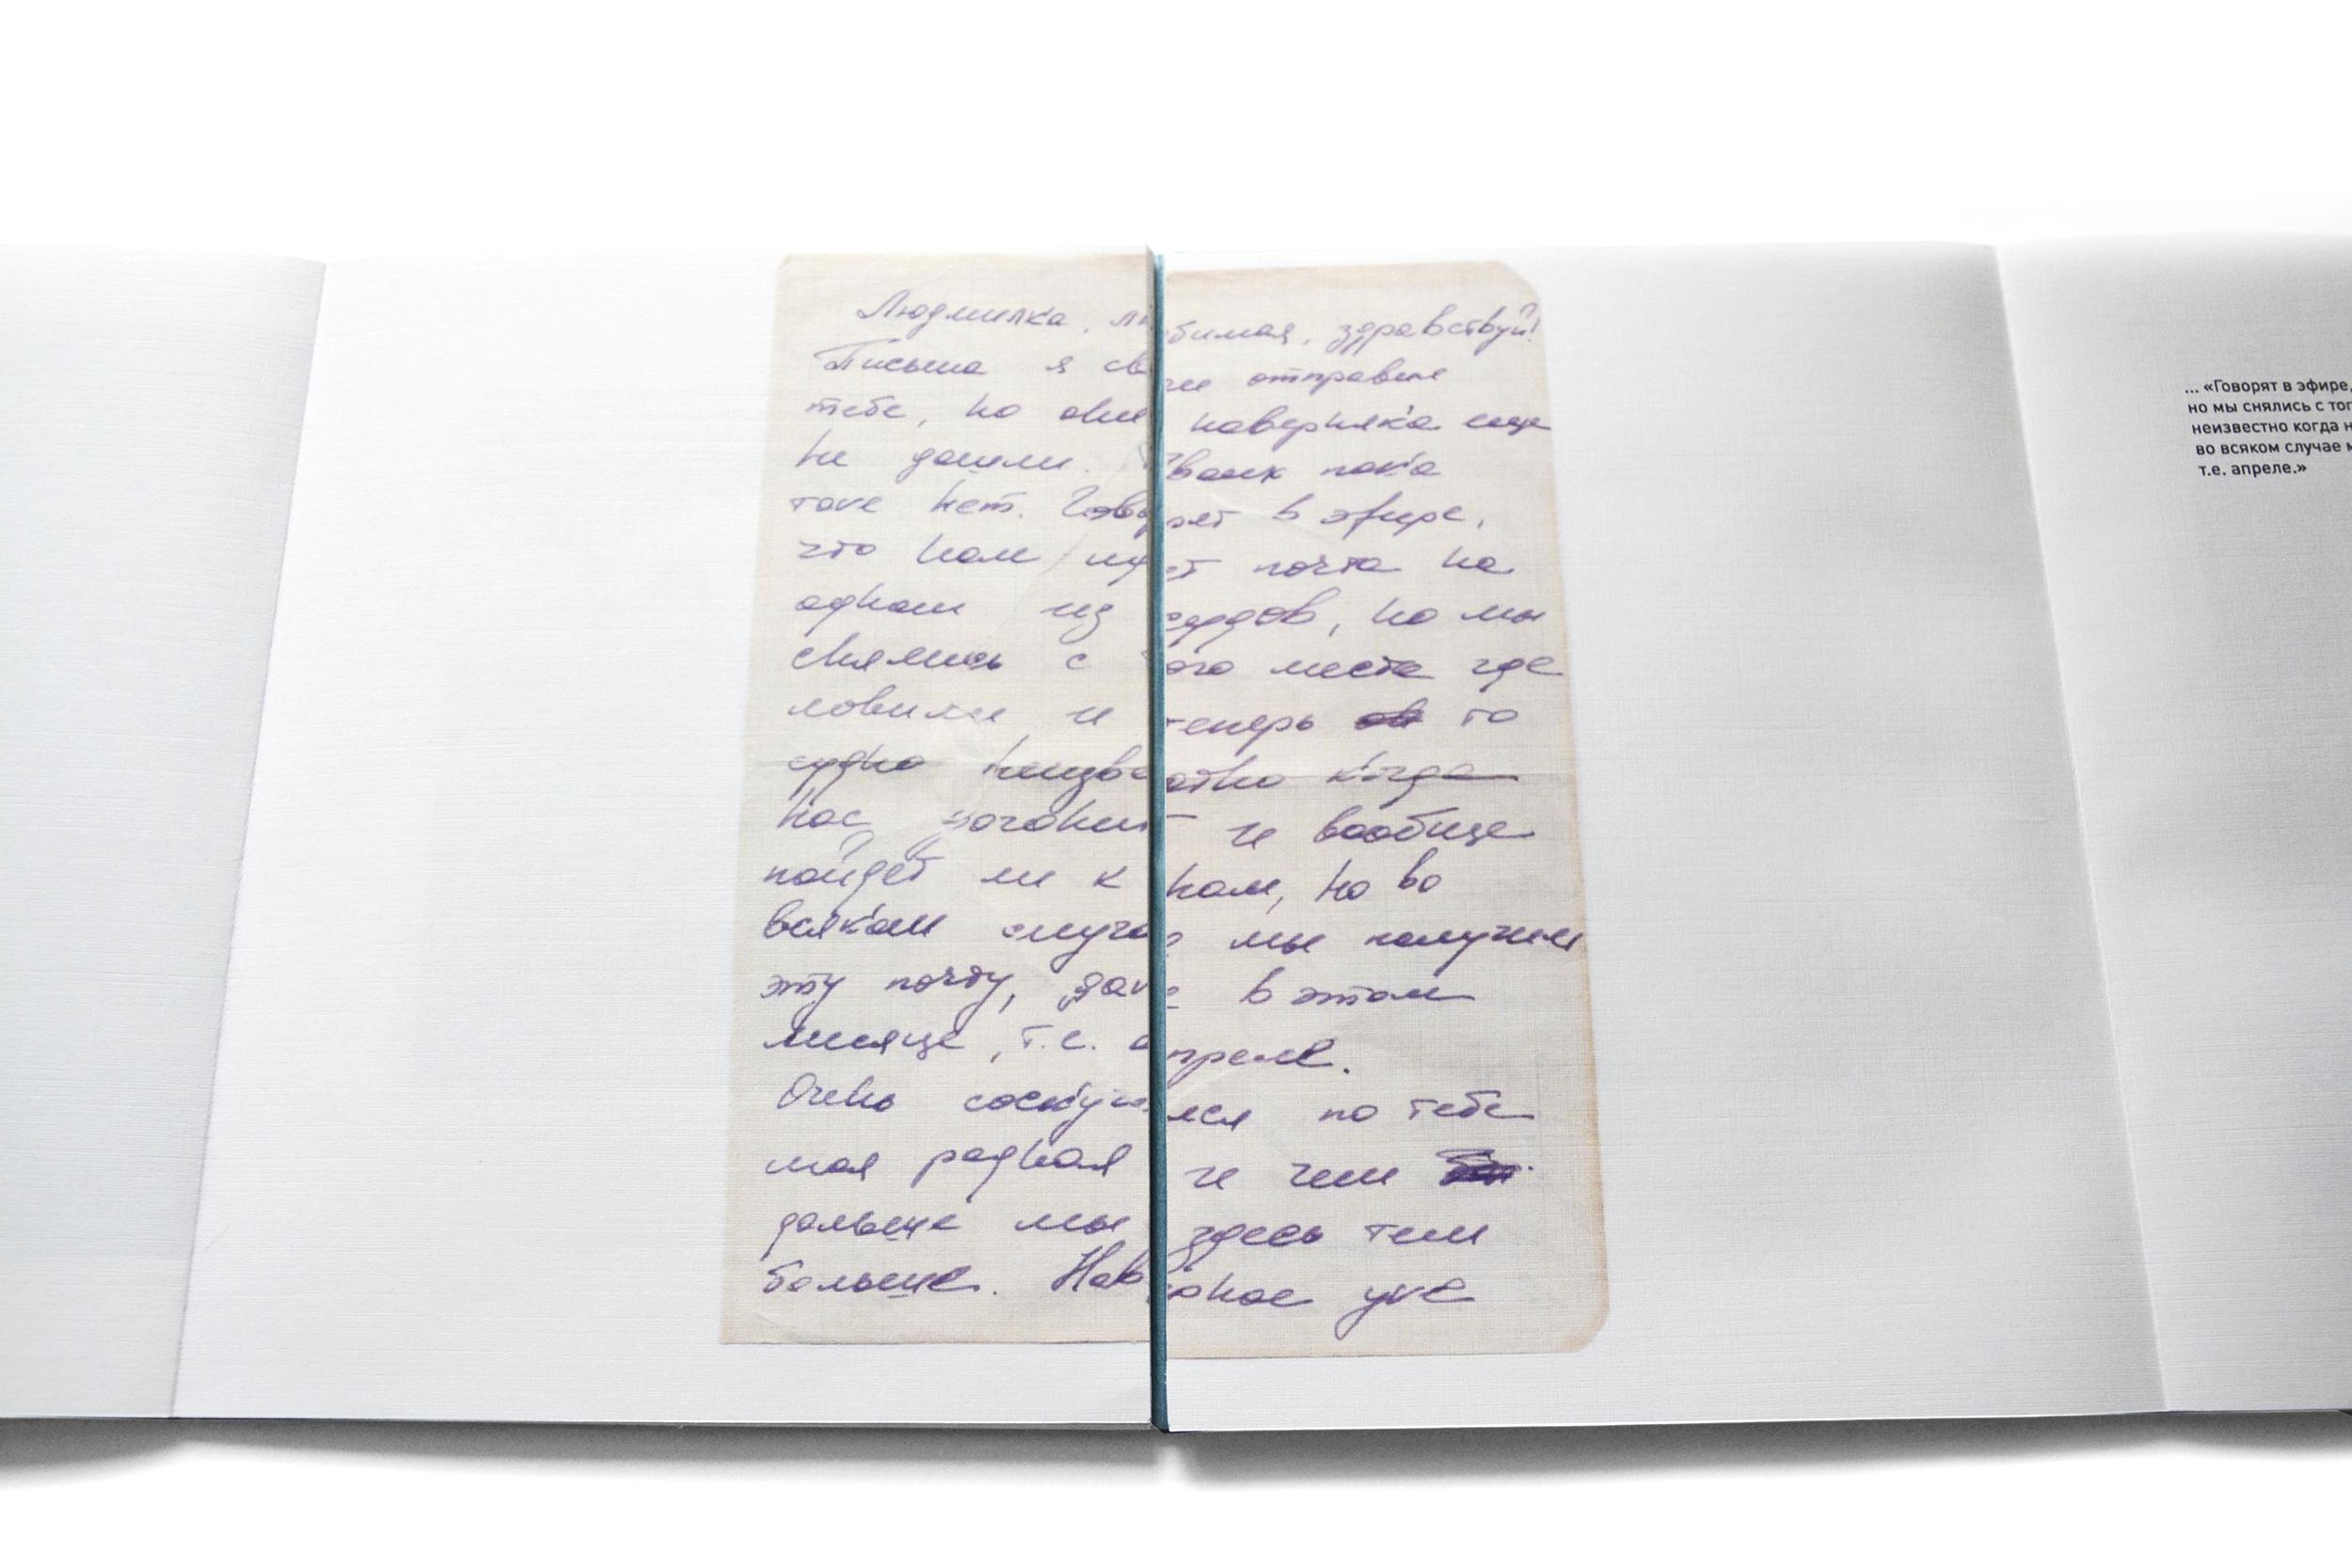 Людмилка, любимая, здравствуй!
Письма я свои отправил
тебе, но они наверняка еще
не дошли. Твоих пока
тоже нет. Говорят в эфире,
что нам идет почта на
одном из судов, но мы
снялись с того места где
ловили и теперь то
судно неизвестно когда
нас догонит и вообще
пойдет ли к нам, но во
всяком случае мы получим
эту почту, даже в этом
месяце, т.е. апреле.
Очень соскучился по тебе
моя родная и чем
дольше мы здесь тем
больше. Наверное уже
... «Говорят в эфире,
но мы снялись с тог
неизвестно когда н
во всяком случае м
т.е. апреле.»